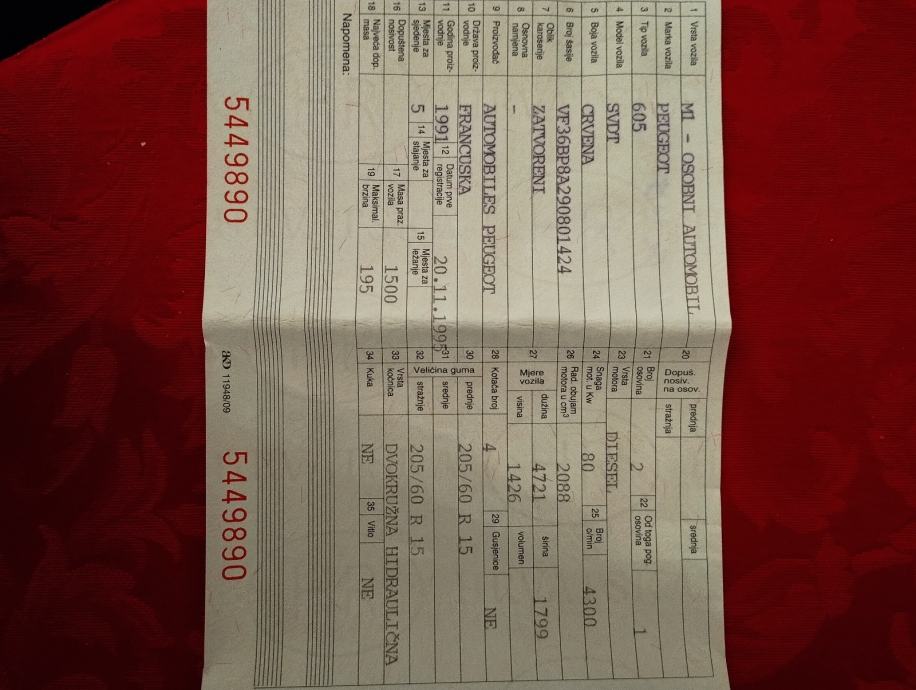 1 Vrsta vozila M1 - OSOBNI AUTOMOBIL
2 Marka vozila PEUGEOT
3 Tip vozila 605
4 Model vozila SVDT
5 Boja vozila CRVENA
6 Broj šasije VF36BP8A290801424
7 Oblik karoserije ZATVORENI
8 Osnovna namjena -
9 Proizvođač AUTOMOBILES PEUGEOT
10 Država proizvodnje FRANCUSKA
11 Godina proizvodnje 1991 12 Datum prve registracije 20.11.1995
13 Mjesta za sjedenje 5 14 Mjesta za stajanje 15 Mjesta za ležanje
16 Dopuštena nosivost 17 Masa praz. vozila 1500
18 Najveća dop. masa 19 Maksimal. brzina 195
Napomena:
5449890
20 Dopuš. nosiv. na osov. prednja srednja
stražnja
21 Broj osovina 2 22 Od toga pog. osovina 1
23 Vrsta motora DIESEL
24 Snaga mot. u Kw 80 25 Broj o/min 4300
26 Rad. obujam motora u cm³ 2088
27 Mjere vozila dužina 4721 širina 1799
visina 1426 volumen
28 Kotača broj 4 29 Gusjenice NE
30 Veličina guma prednje 205/60 R 15
31 srednje
32 stražnje 205/60 R 15
33 Vrsta kočnica DVOKRUŽNA HIDRAULIČNA
34 Kuka NE 35 Vitlo NE
AKD 11948/09
5449890